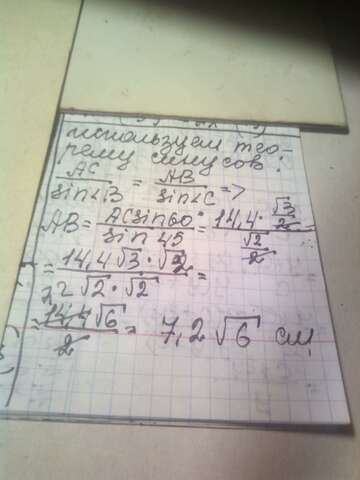 используем тео-
рему синусов:
AC/sin∠B = AB/sin∠C =>
AB = ACsin60°/sin45 = 14,4·√3/2 / √2/2
= 14,4√3·√2 / 2√2·√2 =
= 14,4√6/2 = 7,2√6 см